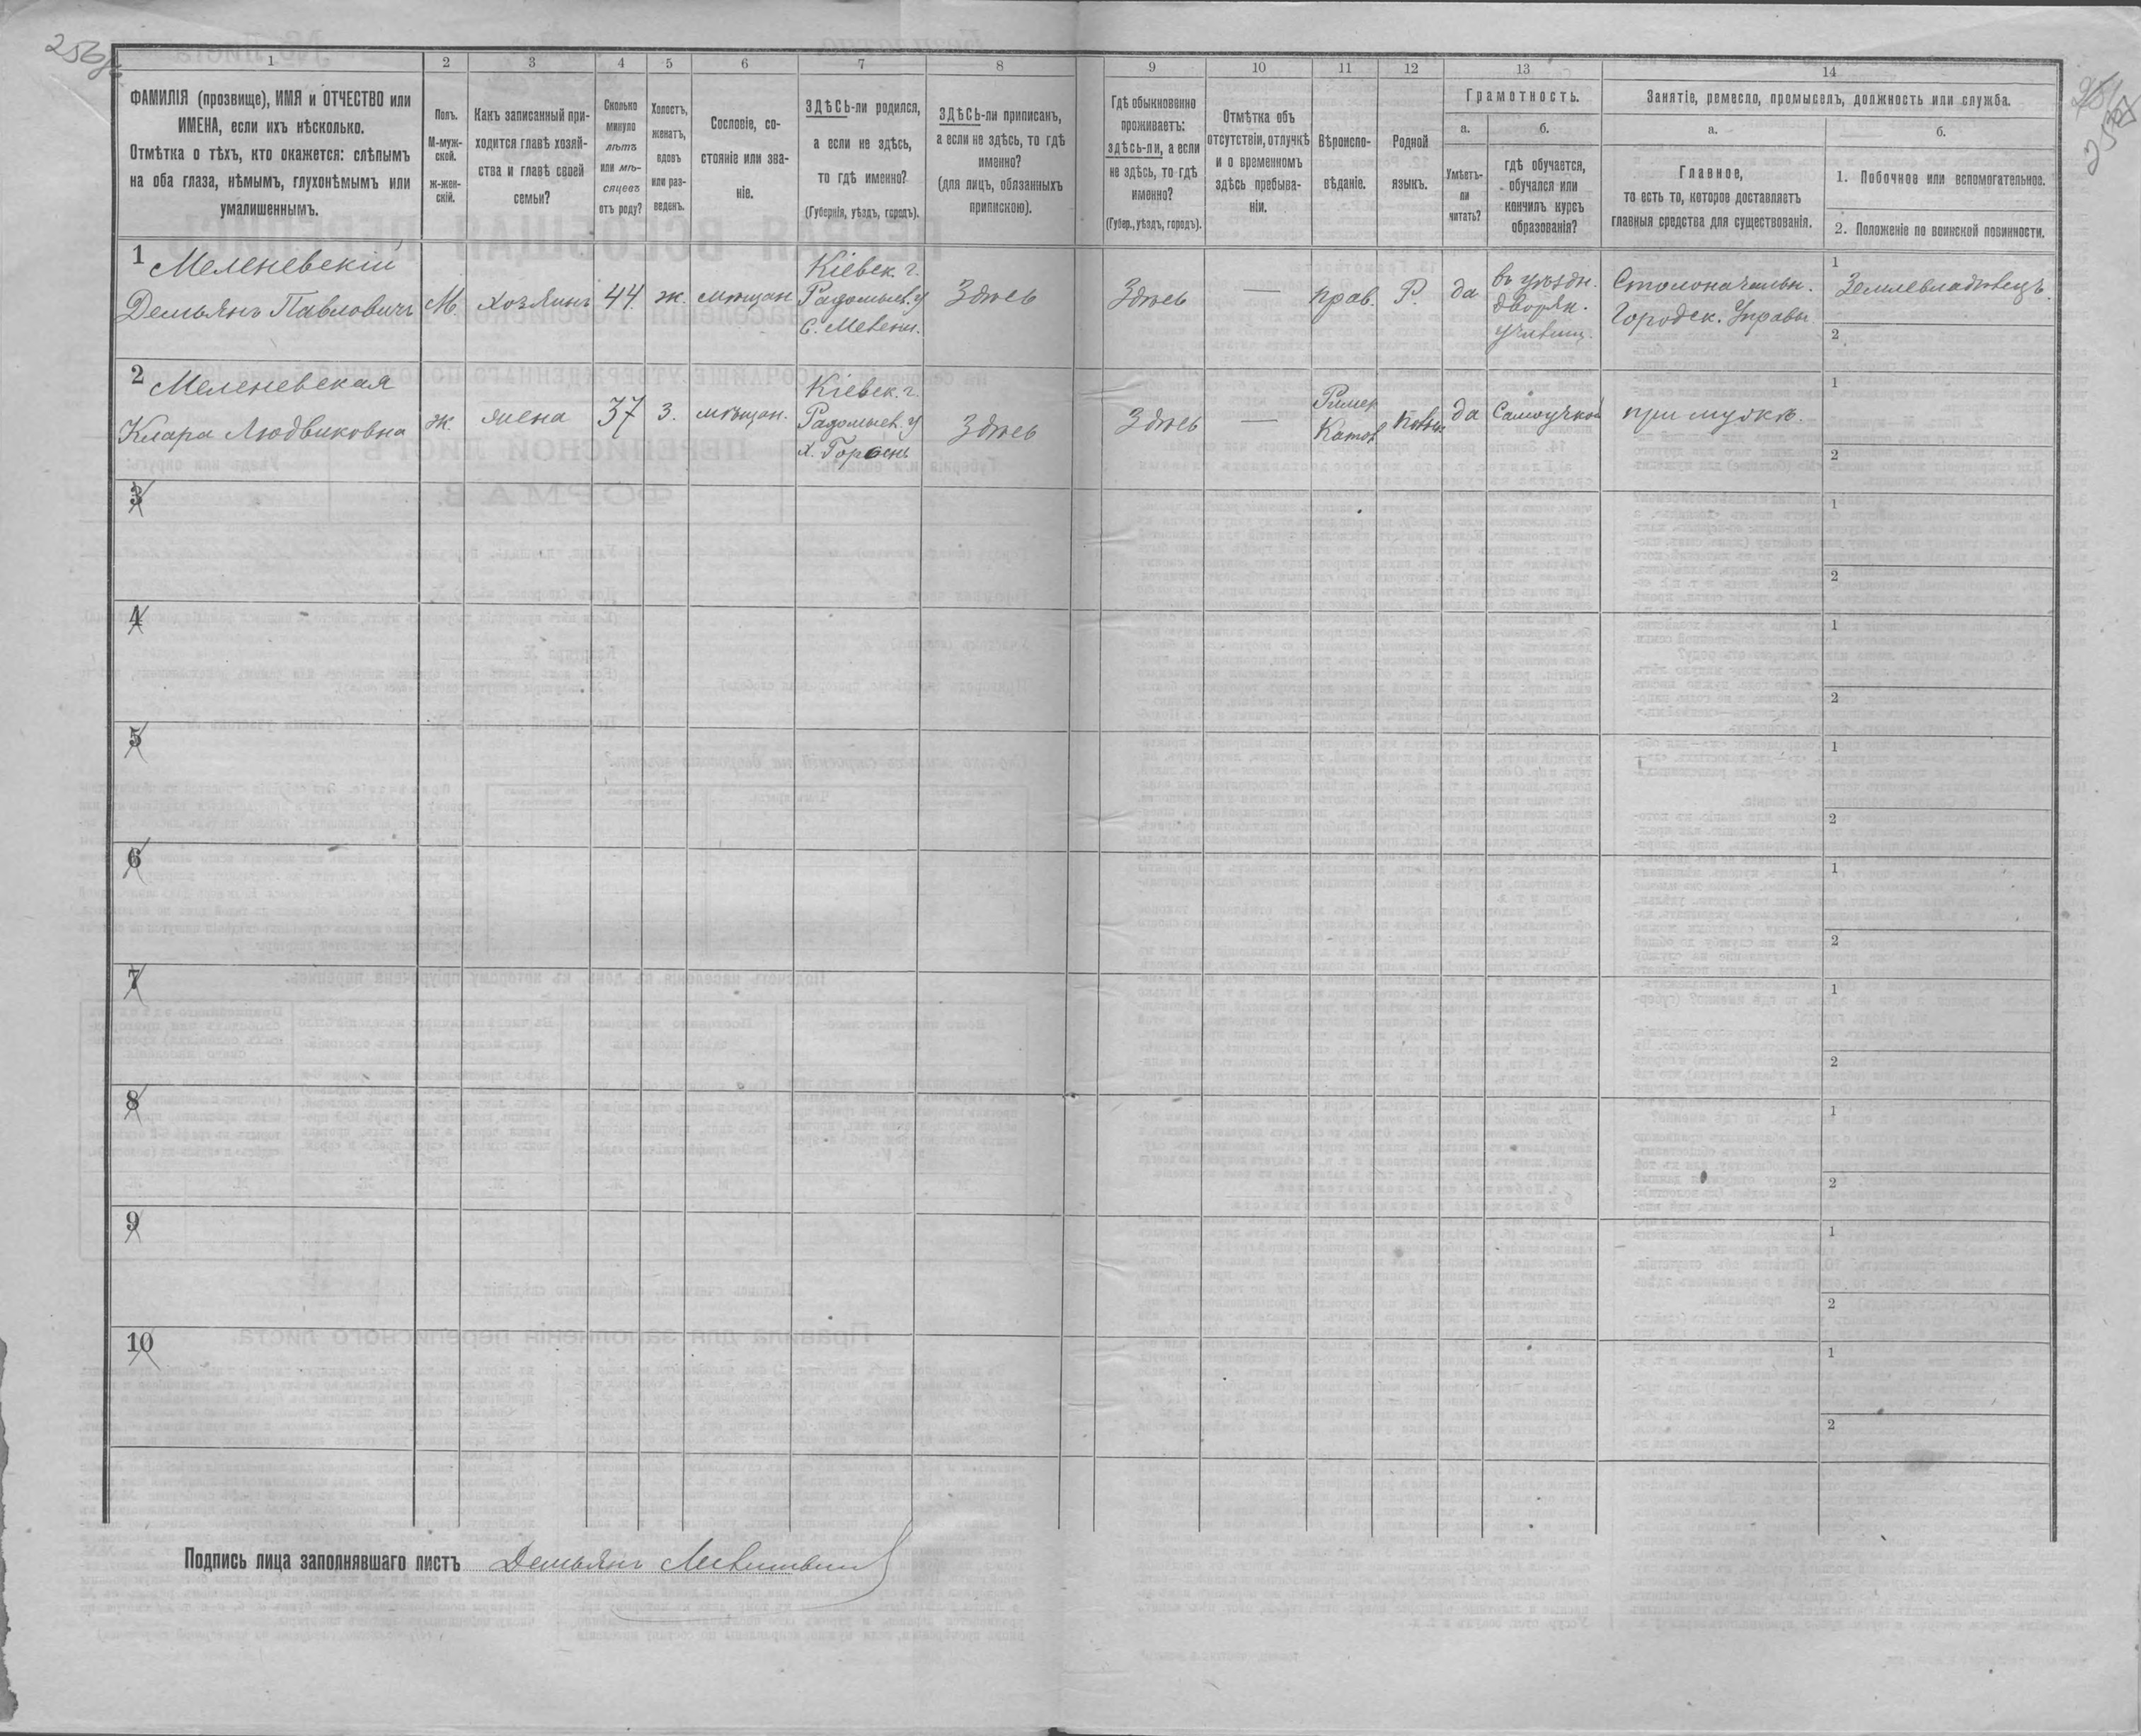 1
2
3
4
5
6
7
8
9
10
11
12
13
14
ФАМИЛІЯ (прозвище), ИМЯ и ОТЧЕСТВО или
ИМЕНА, если ихъ нѣсколько.
Отмѣтка о тѣхъ, кто окажется: слѣпымъ
на оба глаза, нѣмымъ, глухонѣмымъ или
умалишеннымъ.
Полъ.
М-муж-
ской.
ж-жен-
скій.
Какъ записанный при-
ходится главѣ хозяй-
ства и главѣ своей
семьи?
Сколько
минуло
лѣтъ
или мѣ-
сяцевъ
отъ роду?
Холостъ,
женатъ,
вдовъ
или раз-
веденъ.
Сословіе, со-
стояніе или зва-
ніе.
ЗДѢСЬ-ли родился,
а если не здѣсь,
то гдѣ именно?
(Губернія, уѣздъ, городъ).
ЗДѢСЬ-ли приписанъ,
а если не здѣсь, то гдѣ
именно?
(для лицъ, обязанныхъ
припискою).
Гдѣ обыкновенно
проживаетъ:
здѣсь-ли, а если
не здѣсь, то гдѣ
именно?
(Губер., уѣздъ, городъ).
Отмѣтка объ
отсутствіи, отлучкѣ
и о временномъ
здѣсь пребыва-
ніи.
Вѣроиспо-
вѣданіе.
Родной
языкъ.
Грамотность.
а.
Умѣетъ-
ли
читать?
б.
гдѣ обучается,
обучался или
кончилъ курсъ
образованія?
Занятіе, ремесло, промыселъ, должность или служба.
а.
Главное,
то есть то, которое доставляетъ
главныя средства для существованія.
б.
1. Побочное или вспомогательное.
2. Положеніе по воинской повинности.
1
Меленевскій
Демьянъ Павловичъ
М.
хозяинъ
44
ж.
мѣщан.
Кіевск. г.
Радомысл. у
Здѣсь
Здѣсь
—
прав.
Р.
да
въ уѣздн.
дворян.
училищ.
Столоначальн.
Городск. Управы
1
Землевладѣлецъ.
2
2
Меленевская
Клара Людвиковна
ж.
жена
37
з.
мѣщан.
Кіевск. г.
Радомысл. у
Здѣсь
Здѣсь
—
Римск
Катол
да
Самоучкой
при мужѣ.
1
2
3
1
2
4
1
2
5
1
2
6
1
2
7
1
2
8
1
2
9
1
2
10
1
2
Подпись лица заполнявшаго листъ Демьянъ